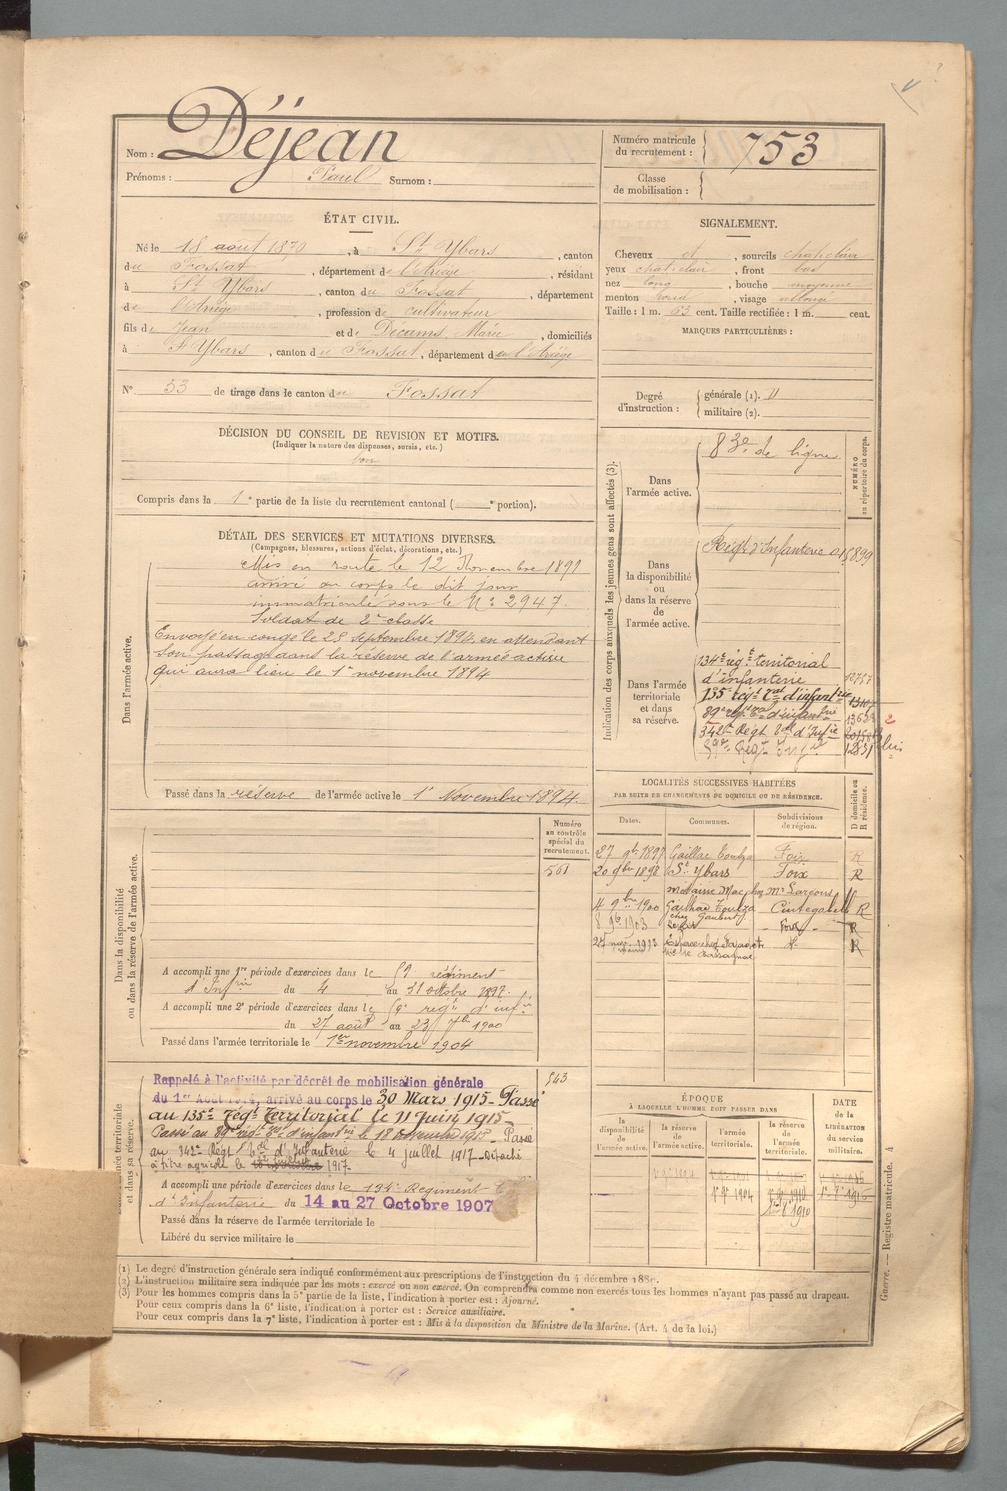 Nom : Déjean
Prénoms : Paul Surnom :
Numéro matricule du recrutement : 753
Classe de mobilisation :
ÉTAT CIVIL.
Né le 18 août 1870, à St Ybars, canton
du Fossat, département de l'Ariège, résidant
à St Ybars, canton du Fossat, département
de l'Ariège, profession de cultivateur
fils de Jean et de Décams Marie, domiciliés
à St Ybars, canton du Fossat, département de l'Ariège
SIGNALEMENT.
Cheveux et, sourcils chat clair
yeux chat clair, front bas
nez long, bouche moyenne
menton rond, visage allongé
Taille : 1 m. 63 cent. Taille rectifiée : 1 m. cent.
MARQUES PARTICULIÈRES :
N° 53 de tirage dans le canton du Fossat
Degré d'instruction : générale (1). II
militaire (2).
DÉCISION DU CONSEIL DE REVISION ET MOTIFS.
(Indiquer la nature des dispenses, sursis, etc.)
bon
Compris dans la 1e partie de la liste du recrutement cantonal ( e portion).
DÉTAIL DES SERVICES ET MUTATIONS DIVERSES.
(Campagnes, blessures, actions d'éclat, décorations, etc.)
Dans l'armée active.
Mis en route le 12 Novembre 1891
arrivé au corps le dit jour
immatriculé sous le N° 2947.
Soldat de 2e classe
Envoyé en congé le 25 septembre 1894 en attendant
son passage dans la réserve de l'armée active
qui aura lieu le 1er novembre 1894
Passé dans la réserve de l'armée active le 1er Novembre 1894.
Indication des corps auxquels les jeunes gens sont affectés (3).
NUMÉRO au répertoire du corps.
Dans l'armée active.
83e de ligne
Dans la disponibilité ou dans la réserve de l'armée active.
Régt d'Infanterie 015899
Dans l'armée territoriale et dans sa réserve.
134e régt territorial
d'infanterie 12757
135e régt Tal d'infanterie 13107
89e régt Tal d'infanterie 13653 2
342e Régt Tal d'Infie
Régt Infie 12831 bis
LOCALITÉS SUCCESSIVES HABITÉES
PAR SUITE DE CHANGEMENTS DE DOMICILE OU DE RÉSIDENCE.
Dates. Communes. Subdivisions de région. D domicile ou R résidence.
27 9bre 1897 Gaillac Toulza Foix R
20 9bre 1898 St Ybars Foix R
4 9bre 1900 Gaillac Toulza Cintegabelle R
8 9bre 1903 Foix R
1913 R
Dans la disponibilité ou dans la réserve de l'armée active.
Numéro au contrôle spécial du recrutement.
561
A accompli une 1re période d'exercices dans le 59 régiment
d'Infrie du 4 au 31 octobre 1897.
A accompli une 2e période d'exercices dans le 59e régt d'infie
du 27 août au 23 7bre 1900
Passé dans l'armée territoriale le 1er novembre 1904
543
Rappelé à l'activité par décret de mobilisation générale
du 1er Août 1914, arrivé au corps le 30 Mars 1915 - Passé
au 135e Régt Territorial le 11 Juin 1915 -
Passé au 89e régt Tal d'infantrie le 18 1915 - Passé
au 342e Régt Tal d'Infanterie le 4 juillet 1917 - Détaché
à titre agricole le 1917 -
A accompli une période d'exercices dans le 134e Régiment
d'Infanterie du 14 au 27 Octobre 1907
Passé dans la réserve de l'armée territoriale le
Libéré du service militaire le
ÉPOQUE
À LAQUELLE L'HOMME DOIT PASSER DANS
la disponibilité de l'armée active. la réserve de l'armée active. l'armée territoriale. la réserve de l'armée territoriale.
DATE de la LIBÉRATION du service militaire.
1er 9bre 1904 1er 9bre 1910 1er 9bre 1916
1er 8bre 1910
(1) Le degré d'instruction générale sera indiqué conformément aux prescriptions de l'instruction du 4 décembre 1889.
(2) L'instruction militaire sera indiquée par les mots : exercé ou non exercé. On comprendra comme non exercés tous les hommes n'ayant pas passé au drapeau.
(3) Pour les hommes compris dans la 5e partie de la liste, l'indication à porter est : Ajourné.
Pour ceux compris dans la 6e liste, l'indication à porter est : Service auxiliaire.
Pour ceux compris dans la 7e liste, l'indication à porter est : Mis à la disposition du Ministre de la Marine. (Art. 4 de la loi.)
Guerre. — Registre matricule. 4